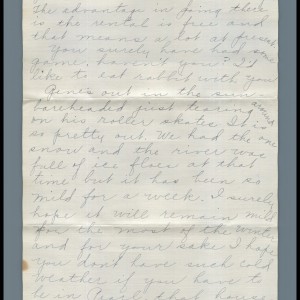 The advantage in going there
is the rental is free and
that means a lot at present.
You surely have had some
game, haven't you? I'd
like to eat rabbit with you
Gene's out in the sun
bareheaded just tearing around
on his roller skates It is
so pretty out. We had the one
snow and the river was
full of ice floes at that
time but it has been so
mild for a week. I surely
hope it will remain mild
for the most of the winter
and for your sake I hope
you don't have such cold
weather if you have to
be in